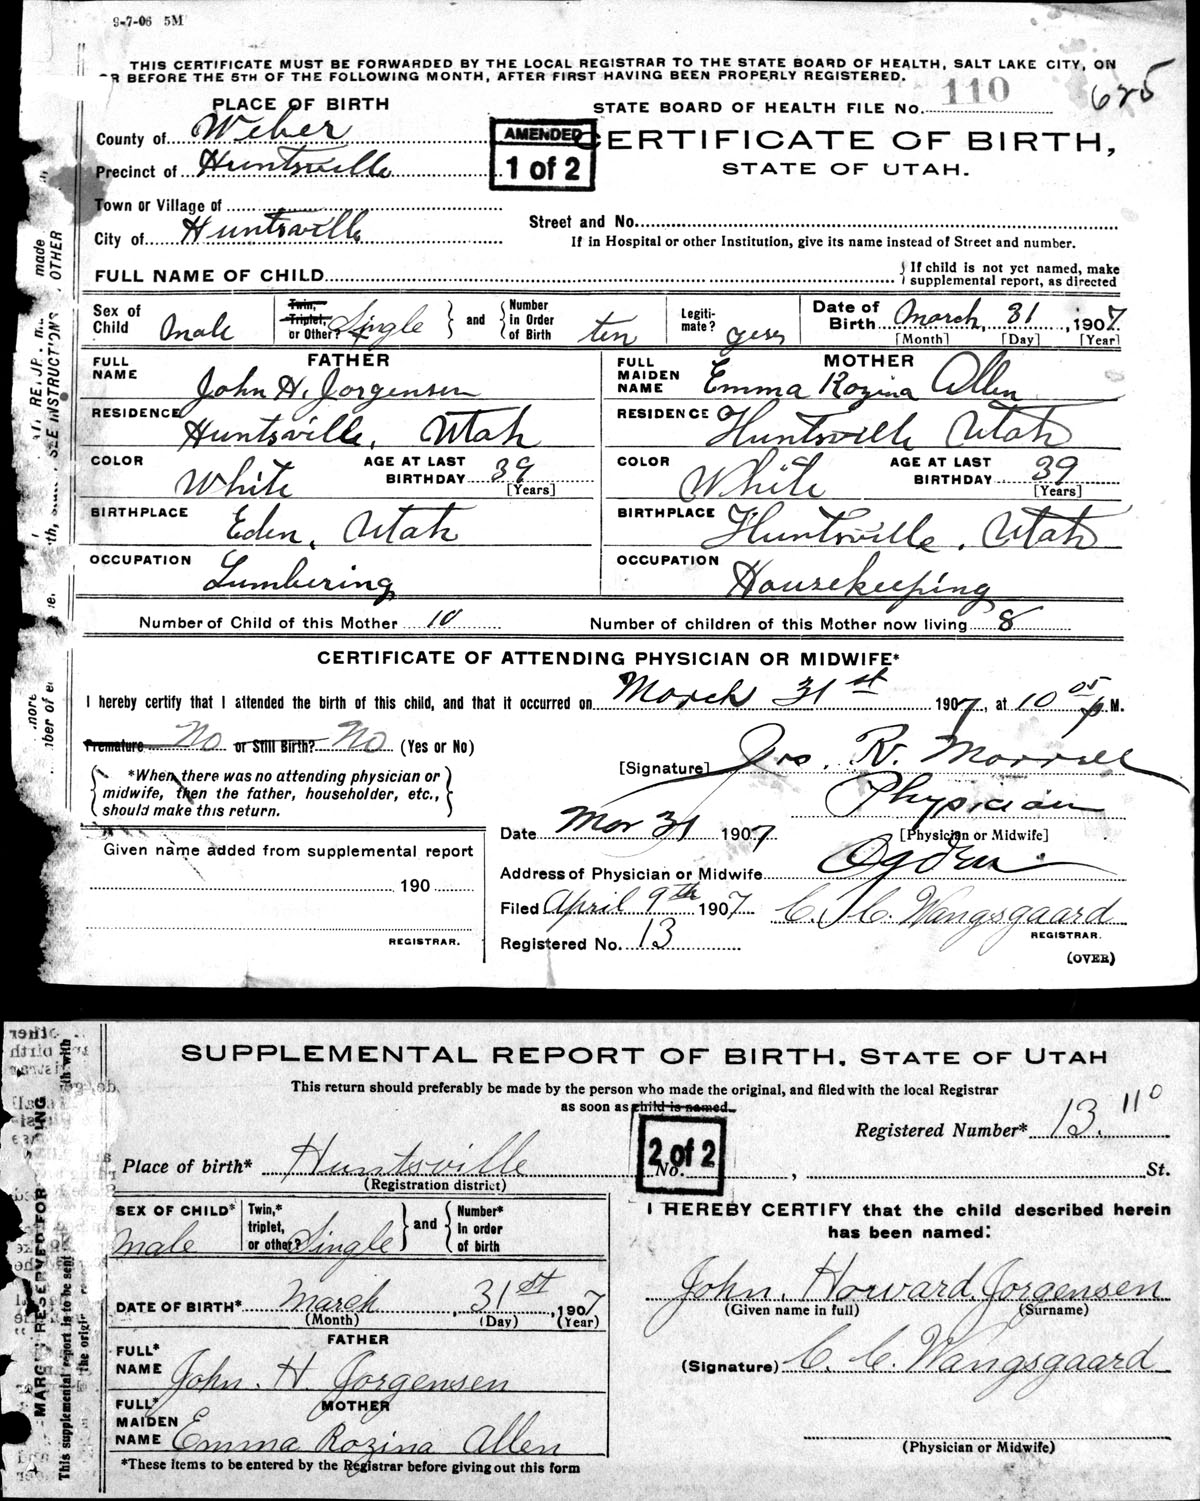 9-7-06 5M
THIS CERTIFICATE MUST BE FORWARDED BY THE LOCAL REGISTRAR TO THE STATE BOARD OF HEALTH, SALT LAKE CITY, ON
OR BEFORE THE 5TH OF THE FOLLOWING MONTH, AFTER FIRST HAVING BEEN PROPERLY REGISTERED.
PLACE OF BIRTH
County of Weber
Precinct of Huntsville
Town or Village of
City of Huntsville
STATE BOARD OF HEALTH FILE No. 110
625
AMENDED
1 of 2
CERTIFICATE OF BIRTH,
STATE OF UTAH.
Street and No.
If in Hospital or other Institution, give its name instead of Street and number.
FULL NAME OF CHILD
If child is not yet named, make
supplemental report, as directed
Sex of Child Male
Twin, Triplet, or Other? Single
and
Number in Order of Birth ten
Legiti-mate? yes
Date of Birth March, 31, 1907
[Month] [Day] [Year]
FATHER
FULL NAME John H. Jorgensen
RESIDENCE Huntsville, Utah
COLOR White
AGE AT LAST BIRTHDAY 39 [Years]
BIRTHPLACE Eden, Utah
OCCUPATION Lumbering
MOTHER
FULL MAIDEN NAME Emma Rozina Allen
RESIDENCE Huntsville Utah
COLOR White
AGE AT LAST BIRTHDAY 39 [Years]
BIRTHPLACE Huntsville, Utah
OCCUPATION Housekeeping
Number of Child of this Mother 10
Number of children of this Mother now living 8
CERTIFICATE OF ATTENDING PHYSICIAN OR MIDWIFE*
I hereby certify that I attended the birth of this child, and that it occurred on March 31st 1907, at 10 05 p M.
Premature No or Still Birth? No (Yes or No)
*When there was no attending physician or
midwife, then the father, householder, etc.,
should make this return.
[Signature] Jos. R. Morrell
Physician
Date Mar 31 1907
[Physician or Midwife]
Address of Physician or Midwife Ogden
Given name added from supplemental report
190
REGISTRAR.
Filed April 9th 1907 C. C. Wangsgaard
REGISTRAR.
Registered No. 13
(OVER)
SUPPLEMENTAL REPORT OF BIRTH, STATE OF UTAH
This return should preferably be made by the person who made the original, and filed with the local Registrar
as soon as child is named.
Registered Number* 13. 110
2 of 2
Place of birth* Huntsville No. , St.
(Registration district)
SEX OF CHILD* Male
Twin,* triplet, or other? Single
and
Number* in order of birth
DATE OF BIRTH* March, 31st, 1907
(Month) (Day) (Year)
FATHER
FULL* NAME John. H. Jorgensen
MOTHER
FULL* MAIDEN NAME Emma Rozina Allen
*These items to be entered by the Registrar before giving out this form
I HEREBY CERTIFY that the child described herein
has been named:
John. Howard. Jorgensen
(Given name in full) (Surname)
(Signature) C. C. Wangsgaard
(Physician or Midwife)
MARGIN RESERVED FOR
This supplemental report is to be sent
the origi
SEE INSTRUCTIONS
OTHER